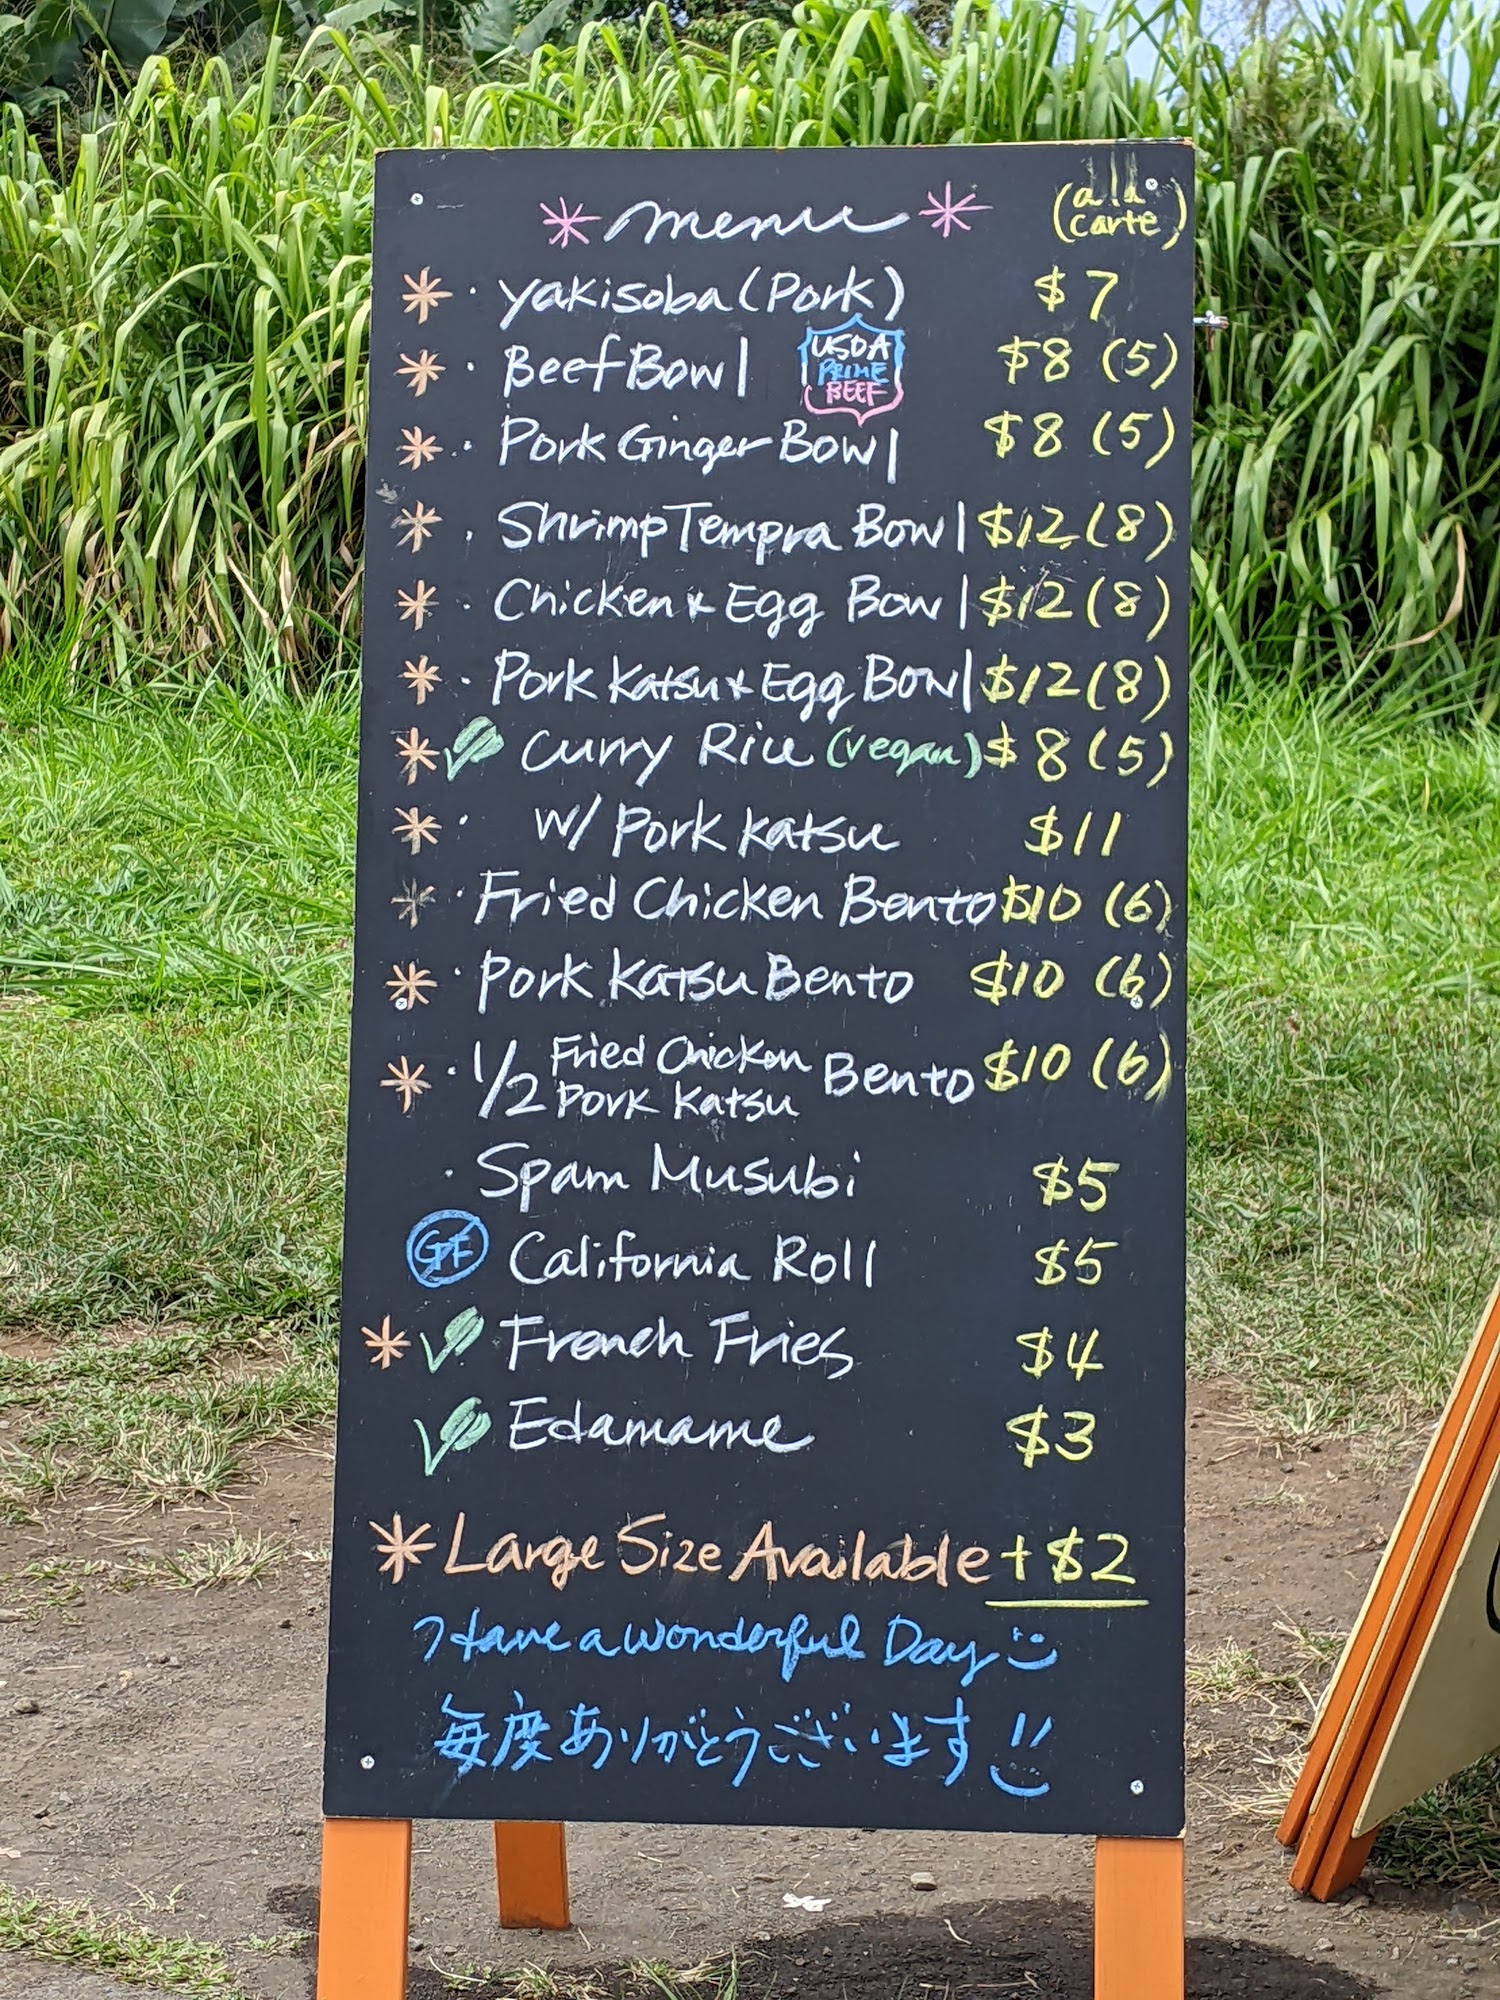 * menu * (a la carte)
* · Yakisoba (Pork) $7
* · Beef Bowl USDA PRIME BEEF $8 (5)
* · Pork Ginger Bowl $8 (5)
* · Shrimp Tempra Bowl $12 (8)
* · Chicken & Egg Bowl $12 (8)
* · Pork Katsu & Egg Bowl $12 (8)
* Curry Rice (vegan) $8 (5)
* · w/ Pork Katsu $11
* · Fried Chicken Bento $10 (6)
* · Pork Katsu Bento $10 (6)
* · 1/2 Fried Chicken Pork Katsu Bento $10 (6)
· Spam Musubi $5
GF California Roll $5
* French Fries $4
Edamame $3
* Large Size Available + $2
Have a wonderful Day
毎度ありがとうございます